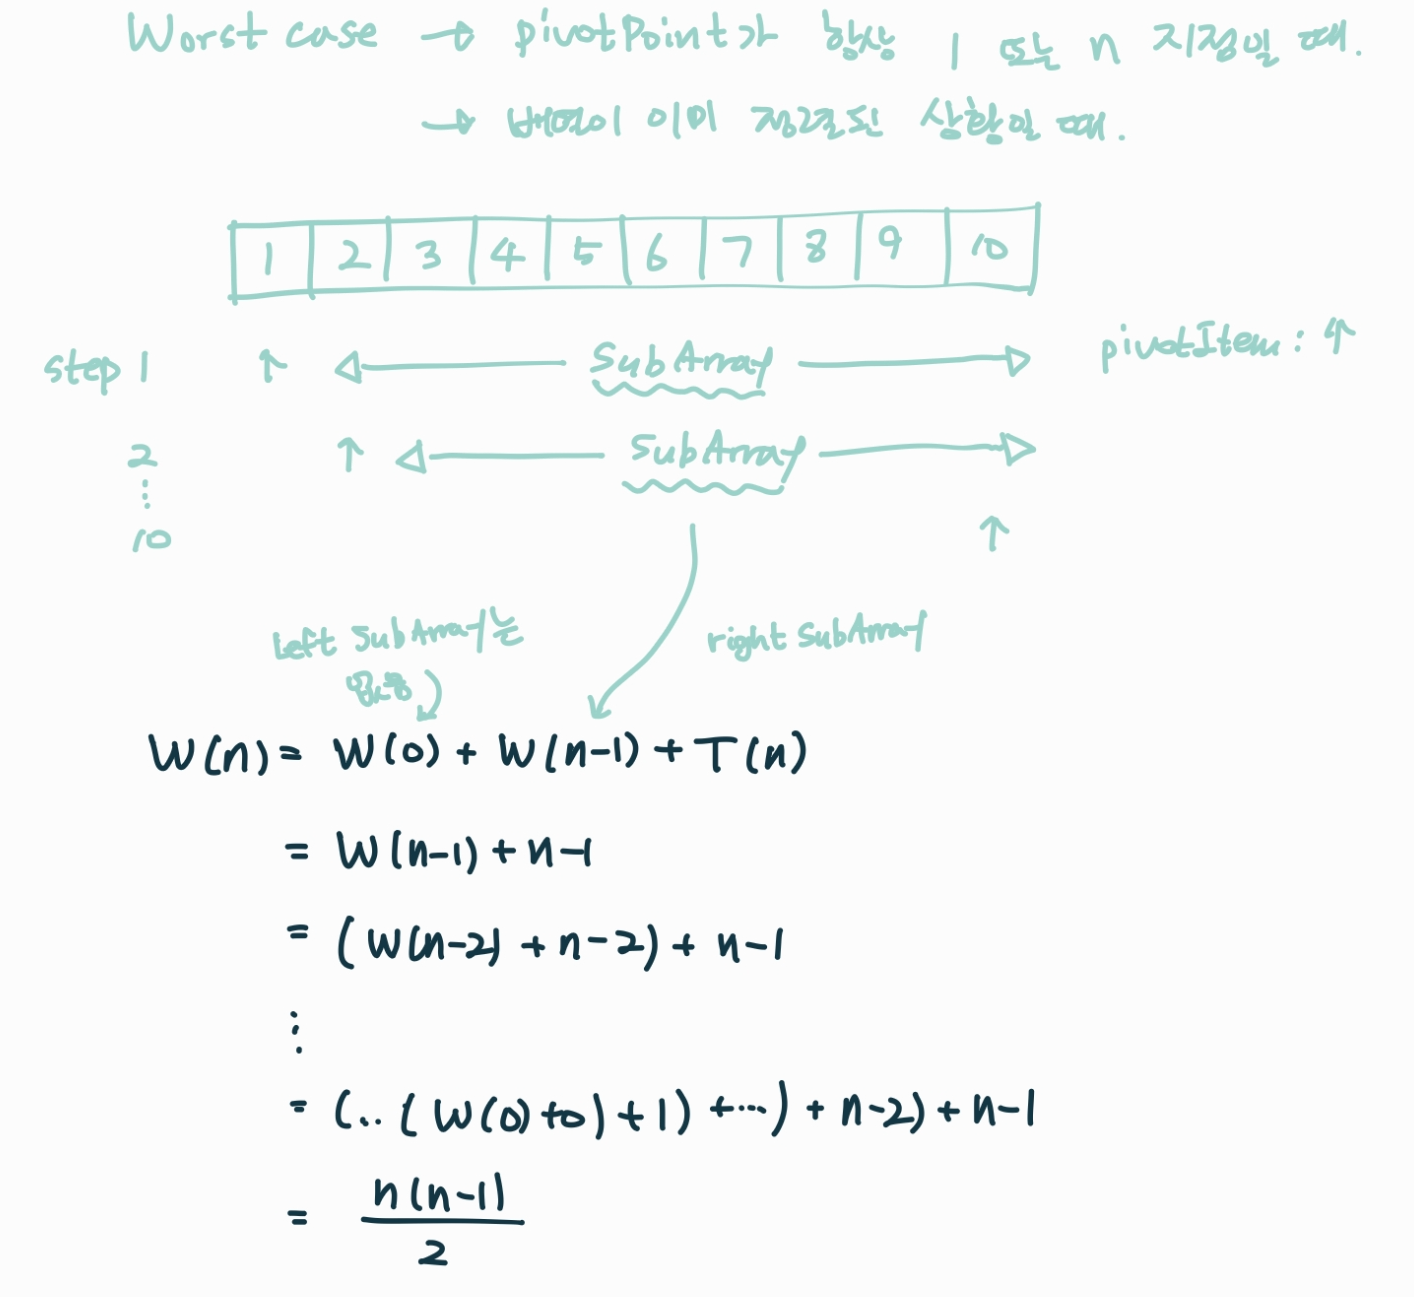 Worst case → pivotPoint가 항상 1 또는 n 지점일 때.
→ 배열이 이미 정렬된 상황일 때.
1 2 3 4 5 6 7 8 9 10
step 1 ↑ SubArray pivotItem : ↑
2 ↑ SubArray
⋮
10 ↑
left SubArray는 right SubArray
없음
W(n) = W(0) + W(n-1) + T(n)
= W(n-1) + n-1
= (W(n-2) + n-2) + n-1
⋮
= (..( W(0)+0) + 1) +···) + n-2) + n-1
= n(n-1)
2